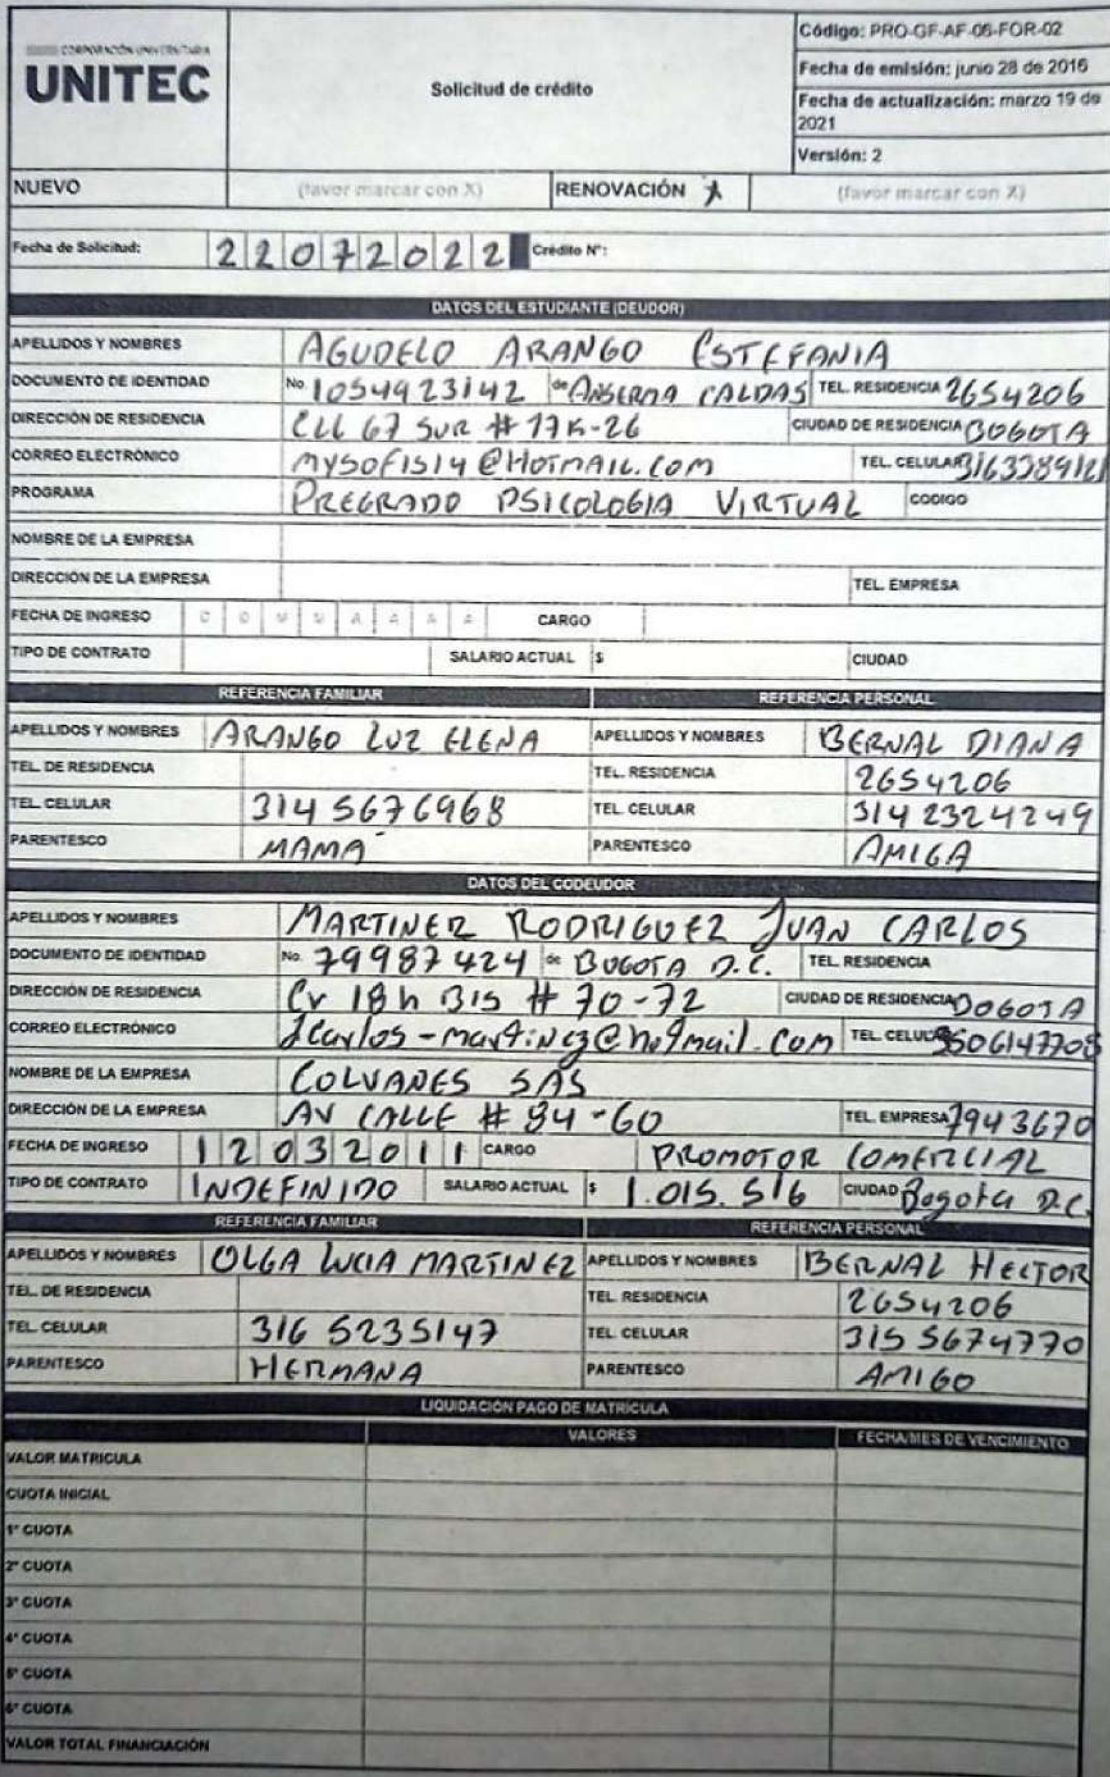 CORPORACIÓN UNIVERSITARIA
UNITEC
Solicitud de crédito
Código: PRO-GF-AF-06-FOR-02
Fecha de emisión: junio 28 de 2016
Fecha de actualización: marzo 19 de 2021
Versión: 2
NUEVO (favor marcar con X) RENOVACIÓN X (favor marcar con X)
Fecha de Solicitud: 2 2 0 7 2 0 2 2 Crédito N°:
DATOS DEL ESTUDIANTE (DEUDOR)
APELLIDOS Y NOMBRES AGUDELO ARANGO ESTEFANIA
DOCUMENTO DE IDENTIDAD No. 1054923142 de ANSERMA CALDAS TEL. RESIDENCIA 2654206
DIRECCIÓN DE RESIDENCIA CLL 67 SUR # 17K-26 CIUDAD DE RESIDENCIA BOGOTA
CORREO ELECTRÓNICO MYSOFIS14@HOTMAIL.COM TEL. CELULAR
PROGRAMA PREGRADO PSICOLOGIA VIRTUAL CODIGO
NOMBRE DE LA EMPRESA
DIRECCIÓN DE LA EMPRESA TEL. EMPRESA
FECHA DE INGRESO D D M M A A A A CARGO
TIPO DE CONTRATO SALARIO ACTUAL $ CIUDAD
REFERENCIA FAMILIAR REFERENCIA PERSONAL
APELLIDOS Y NOMBRES ARANGO LUZ ELENA APELLIDOS Y NOMBRES BERNAL DIANA
TEL. DE RESIDENCIA TEL. RESIDENCIA 2654206
TEL. CELULAR 314 5676968 TEL. CELULAR 314 2324249
PARENTESCO MAMÁ PARENTESCO AMIGA
DATOS DEL CODEUDOR
APELLIDOS Y NOMBRES MARTINEZ RODRIGUEZ JUAN CARLOS
DOCUMENTO DE IDENTIDAD No. 79987424 de BOGOTA D.C. TEL. RESIDENCIA
DIRECCIÓN DE RESIDENCIA Cr 18h BIS # 70-72 CIUDAD DE RESIDENCIA BOGOTA
CORREO ELECTRÓNICO Jcarlos-martinez@hotmail.com TEL. CELULAR 3506147708
NOMBRE DE LA EMPRESA COLVANES SAS
DIRECCIÓN DE LA EMPRESA AV CALLE # 84-60 TEL. EMPRESA 7943670
FECHA DE INGRESO 1 2 0 3 2 0 1 1 CARGO PROMOTOR COMERCIAL
TIPO DE CONTRATO INDEFINIDO SALARIO ACTUAL $ 1.015.516 CIUDAD Bogota D.C.
REFERENCIA FAMILIAR REFERENCIA PERSONAL
APELLIDOS Y NOMBRES OLGA LUCIA MARTINEZ APELLIDOS Y NOMBRES BERNAL HECTOR
TEL. DE RESIDENCIA TEL. RESIDENCIA 2654206
TEL. CELULAR 316 5235147 TEL. CELULAR 315 5674770
PARENTESCO HERMANA PARENTESCO AMIGO
LIQUIDACIÓN PAGO DE MATRÍCULA
VALORES FECHA/MES DE VENCIMIENTO
VALOR MATRICULA
CUOTA INICIAL
1ª CUOTA
2ª CUOTA
3ª CUOTA
4ª CUOTA
5ª CUOTA
6ª CUOTA
VALOR TOTAL FINANCIACIÓN